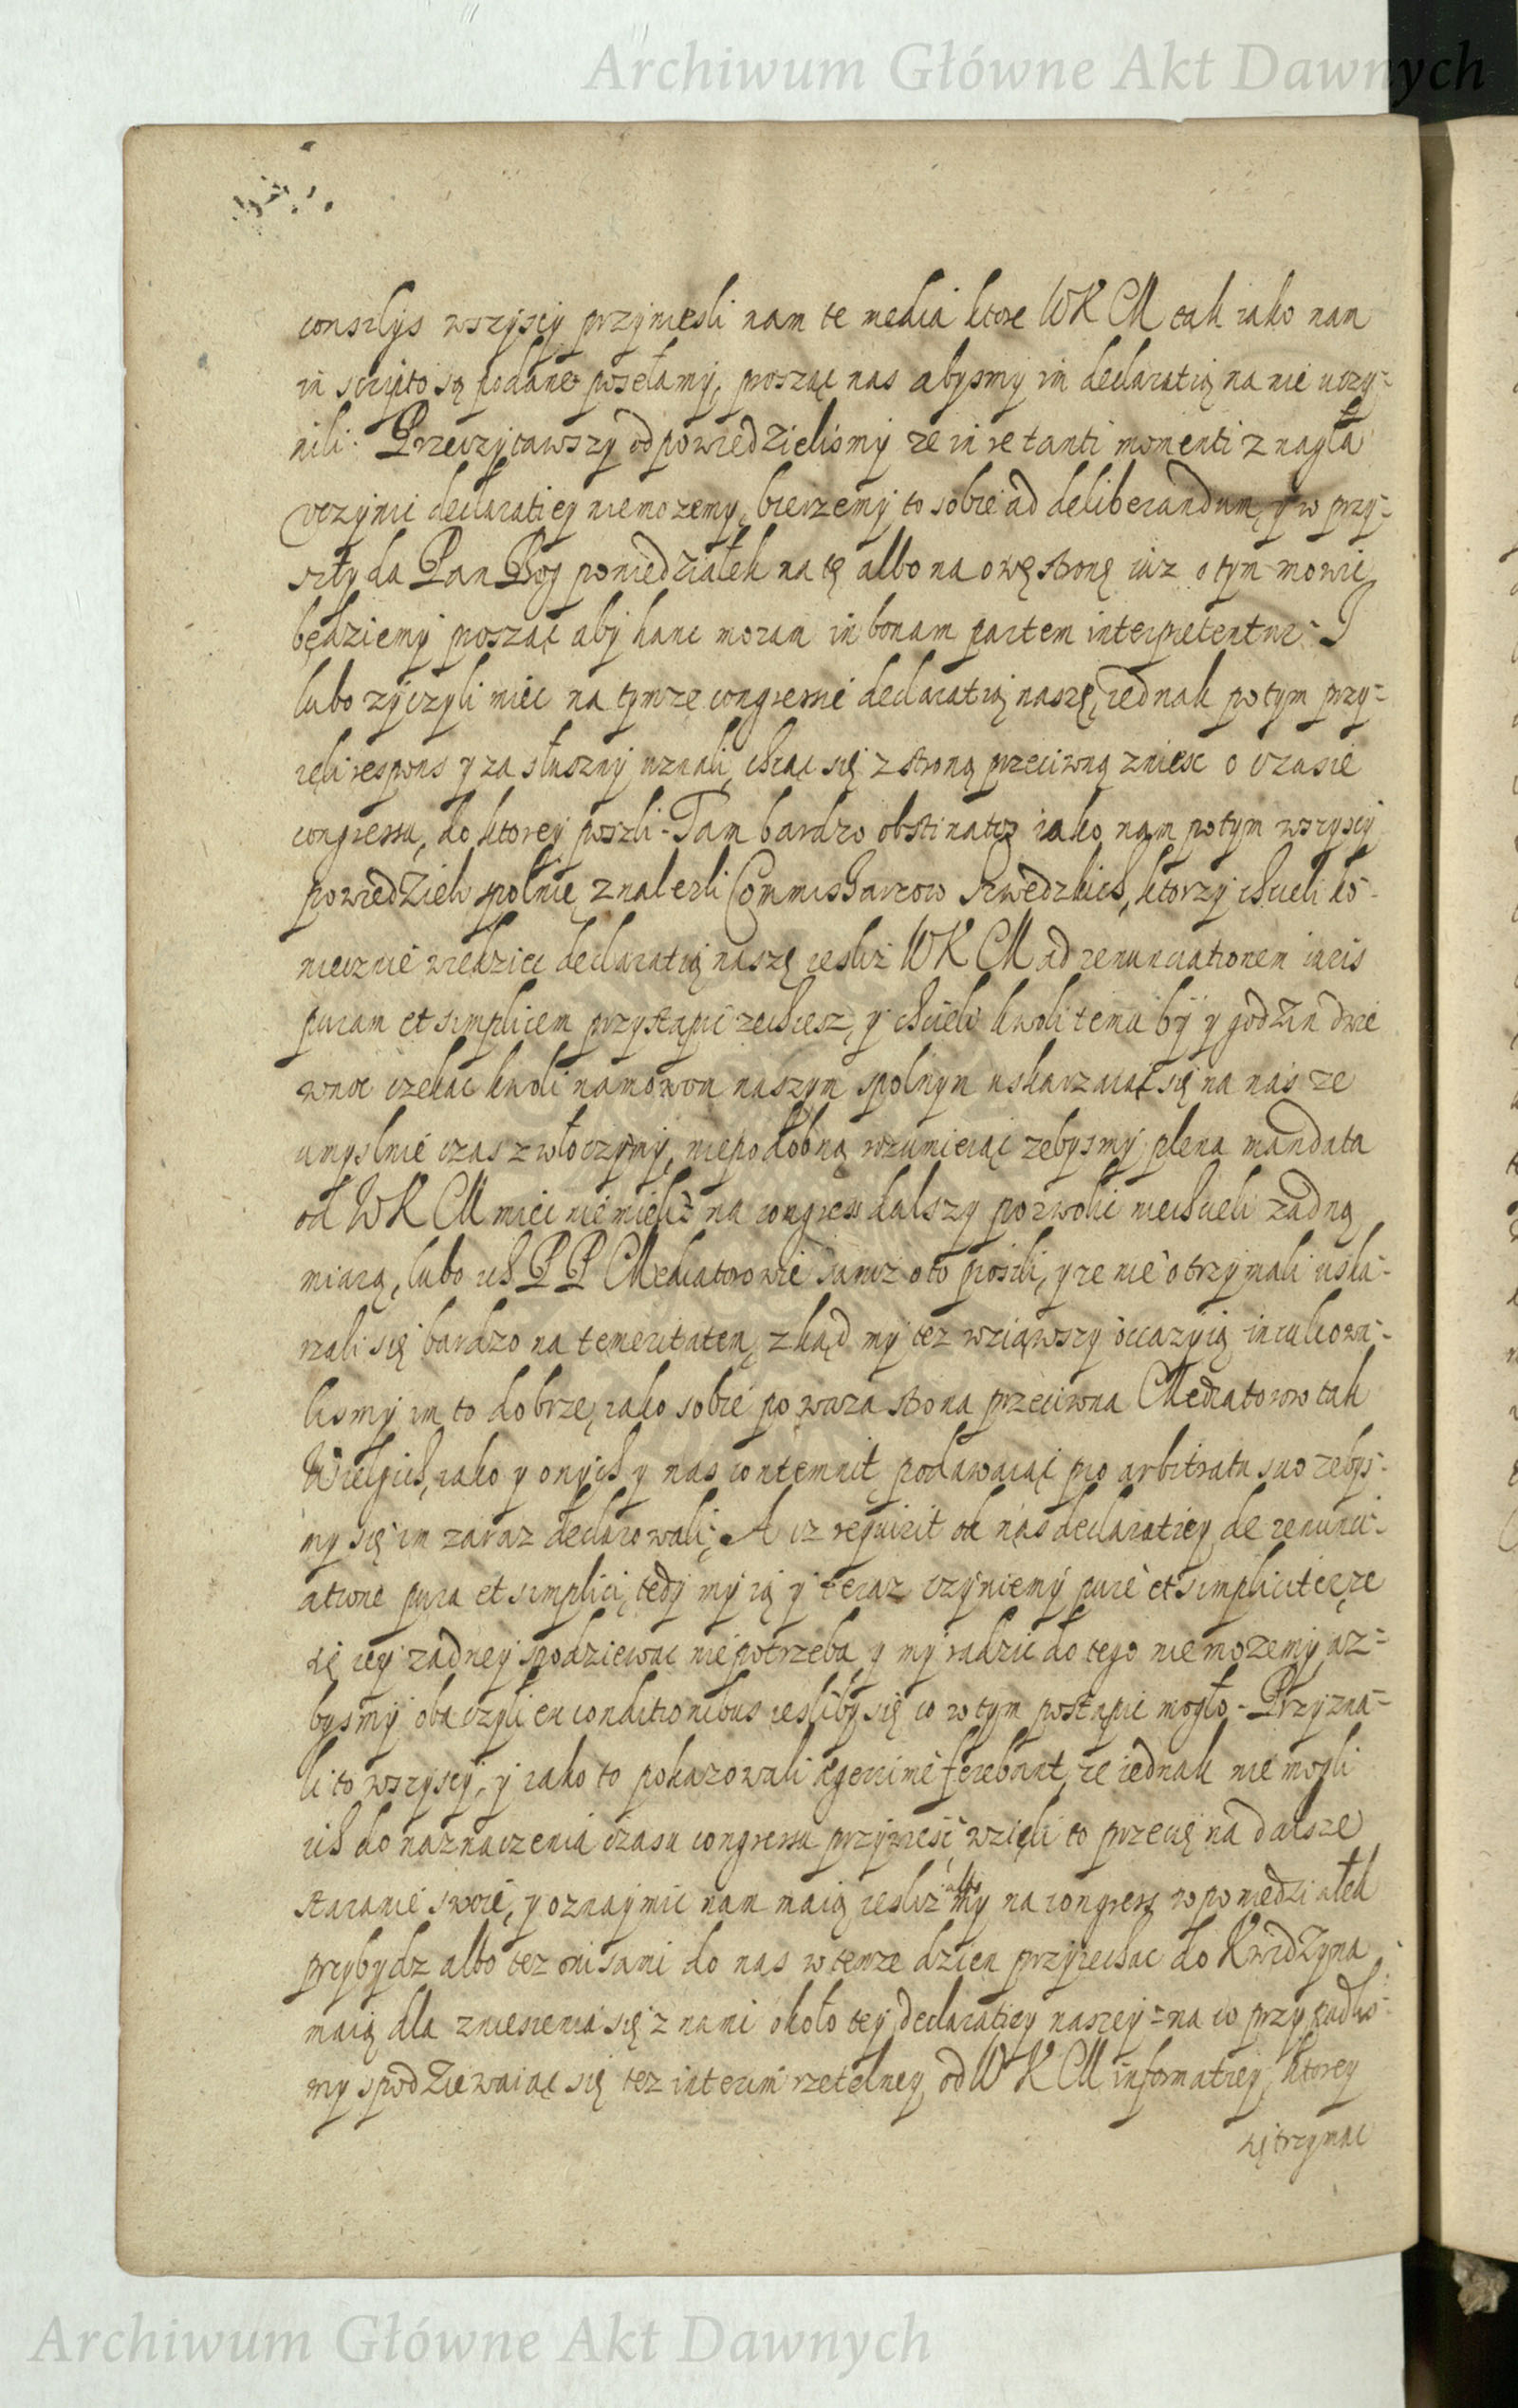 Archiwum Główne Akt Dawnych
consilijs wszyscy przyniesli nam te media ktore WKCM tak iako nam
in scripto są podane posełamy, prosząc nas abysmy im declaratią na nie uczy-
nili. Przeczytawszy odpowiedzielismy ze in re tanti momenti z nagła
Vczynić declaratiey niemozemy, bierzemy to sobie ad deliberandum, y w przy-
szły da Pan Bog poniedziałek na tę albo na owę stronę iuz o tym mowić
będziemy prosząc aby hanc moram in bonam partem interpretentur. I
lubo zyczyli miec na tymze congressie declaratią naszę, iednak potym przy-
ięli respons y za słuszny uznali, chcąc się z stroną przeciwną zniesc o czasie
congressu, do ktorey poszli. Tam bardzo obstinatos iako nam potym wszyscy
powiedzieli spolnie znalezli Commissarzow Szwedzkich, ktorzy chcieli ko-
niecznie wiedziec declaratią naszę iesliz WKCM ad renunciationem iuris
puram et simplicem przystąpić zechcesz, y chcieli kwoli temu by y godzin dwie
wnoc czekac kwoli namowom naszym spolnym uskarzaiąc się na nas ze
umyslnie czas zwłoczymy, niepodobną rozumieiąc zebysmy plena mandata
od WKCM miec nie mieli, na congress dalszy pozwolic niechcieli zadną
miarą, lubo ich PP Mediatorowie sami oto prosili, y ze nie otrzymali uska-
rzali się bardzo na temeritatem, zkąd my tez wziąwszy occazyią inculcowa-
lismy im to dobrze, iako sobie powaza strona przeciwna Mediatorow tak
Wielgich, iako y onych y nas contemnit, podawaiąc pro arbitratu suo zebys-
my się im zaraz declarowali. A iz requirit od nas declaratiey de renunci-
atione pura et simplici, tedy my ią y teraz czyniemy pure et simpliciter, ze
się iey zadney spodziewac niepotrzeba, y my radzic do tego niemozemy, az-
bysmy obaczyli ex conditionibus ieslibÿ się co w tym postąpic mogło. Przyzna-
li to wszyscy, y iako to pokazowali aegerrime ferebant, ze iednak nie mogli
ich do naznaczenia czasu congressu przywiesć, wzieli to przecię na dalsze
staranie swoie, y oznaymic nam maią iesliz albo my na congress w poniedziałek
przybydz albo tez oni sami do nas w tenze dzien przyiechac do Kwidzyna
maią dla zniesienia się z nami około tey declaratiey naszey = na co przypadlis-
my spodziewaiąc się tez interim rzetelney od WKCM informatiey, ktorey
się trzymac
Archiwum Główne Akt Dawnych